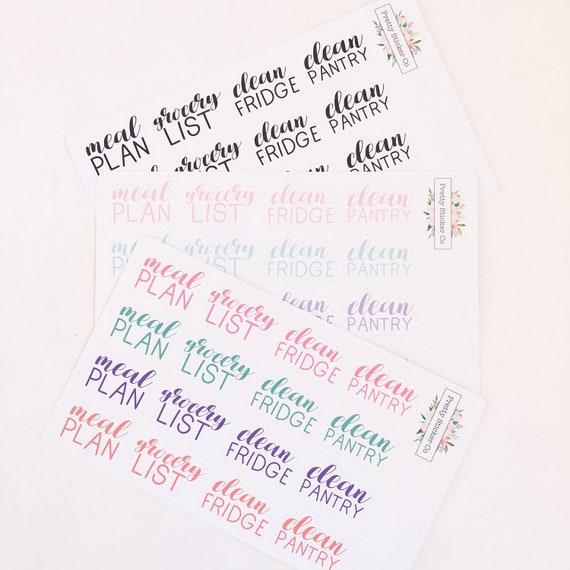 meal PLAN grocery LIST clean FRIDGE clean PANTRY
Pretty Sticker Co
meal PLAN grocery LIST clean FRIDGE clean PANTRY
clean PANTRY
meal PLAN grocery LIST clean FRIDGE clean PANTRY
Pretty Sticker Co
meal PLAN grocery LIST clean FRIDGE clean PANTRY
clean FRIDGE clean PANTRY
meal PLAN grocery LIST clean FRIDGE clean PANTRY
Pretty Sticker Co
meal PLAN grocery LIST clean FRIDGE clean PANTRY
meal PLAN grocery LIST clean FRIDGE clean PANTRY
meal PLAN grocery LIST clean FRIDGE clean PANTRY